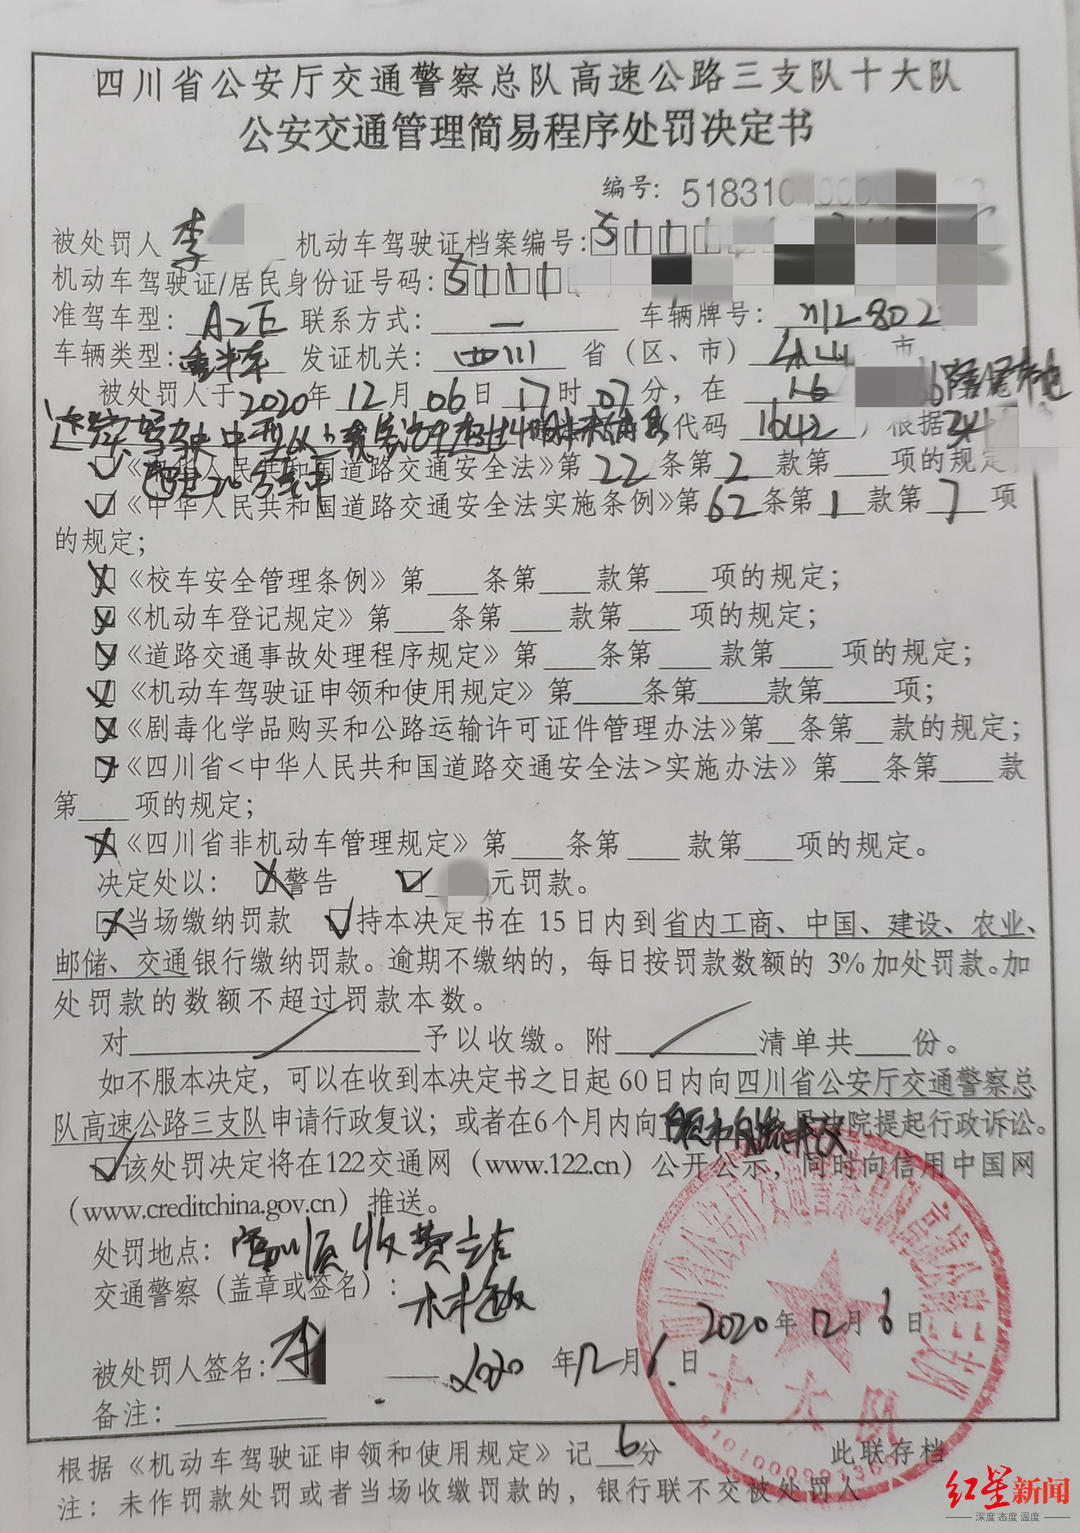 四川省公安厅交通警察总队高速公路三支队十大队
公安交通管理简易程序处罚决定书
编号：518310
被处罚人 李 机动车驾驶证档案编号：5111
机动车驾驶证/居民身份证号码：5111
准驾车型：A2E 联系方式：— 车辆牌号：川L802
车辆类型： 发证机关：四川 省（区、市）乐山 市
被处罚人于2020年12月06日17时07分，在 16
代码 1642 ）根据
☑《中华人民共和国道路交通安全法》第22条第2款第 项的规定；
☑《中华人民共和国道路交通安全法实施条例》第62条第1款第7项
的规定；
☒《校车安全管理条例》第___条第___款第___项的规定；
☒《机动车登记规定》第___条第___款第___项的规定；
☒《道路交通事故处理程序规定》第___条第___款第___项的规定；
☑《机动车驾驶证申领和使用规定》第___条第___款第___项；
☒《剧毒化学品购买和公路运输许可证件管理办法》第__条第__款的规定；
☒《四川省<中华人民共和国道路交通安全法>实施办法》第__条第___款
第___项的规定；
☒《四川省非机动车管理规定》第___条第___款第___项的规定。
决定处以：☒警告 ☑ 元罚款。
☒当场缴纳罚款 ☑持本决定书在15日内到省内工商、中国、建设、农业、
邮储、交通银行缴纳罚款。逾期不缴纳的，每日按罚款数额的 3%加处罚款。加
处罚款的数额不超过罚款本数。
对___予以收缴。附___清单共___份。
如不服本决定，可以在收到本决定书之日起60日内向四川省公安厅交通警察总
队高速公路三支队申请行政复议；或者在6个月内向 法院提起行政诉讼。
☑该处罚决定将在122交通网（www.122.cn）公开公示，同时向信用中国网
（www.creditchina.gov.cn）推送。
处罚地点： 收费站
交通警察（盖章或签名）：林
2020年12月6日
被处罚人签名：李 2020年12月6日
备注：
十大队
根据《机动车驾驶证申领和使用规定》记6分 此联存档
注：未作罚款处罚或者当场收缴罚款的，银行联不交被处罚人
红星新闻
深度 态度 温度